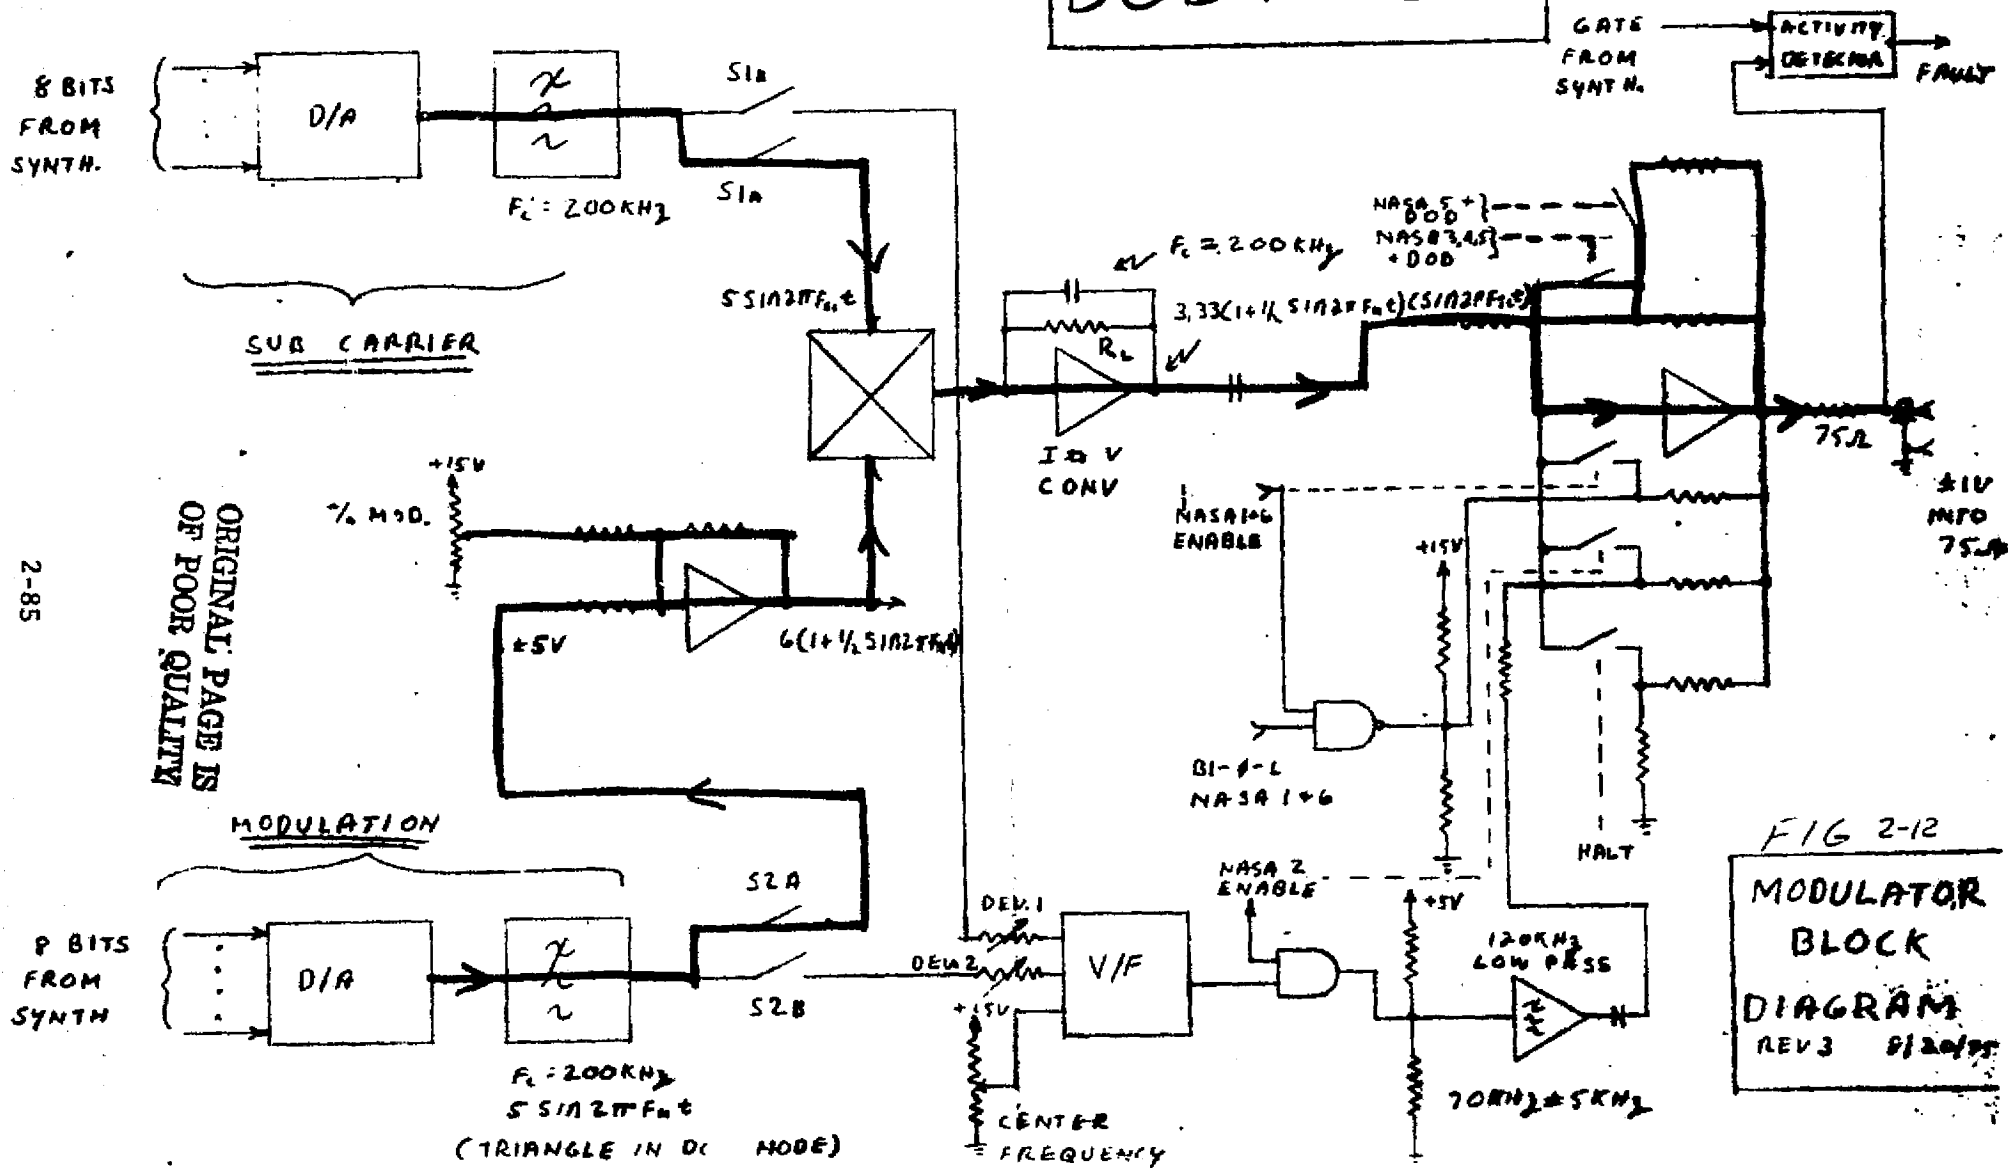 GATE
FROM
SYNTH.
ACTIVITY
DETECTOR
FAULT
8 BITS
FROM
SYNTH.
D/A
S1B
S1A
Fc = 200KHz
SUB CARRIER
5 SIN2πFsct
NASA 5 +
DOD
NASA 3,4,5
+ DOD
Fc = 200KHz
3.33(1+1/2 SIN2πFmt)(SIN2πFsct)
RL
I to V
CONV
75Ω
±1V
INTO
75Ω
+15V
% MOD.
±5V
6(1+1/2 SIN2πFmt)
NASA 1+6
ENABLE
+15V
BI-φ-L
NASA 1+6
HALT
ORIGINAL PAGE IS
OF POOR QUALITY
2-85
MODULATION
8 BITS
FROM
SYNTH
D/A
S2A
S2B
Fc = 200KHz
5 SIN 2πFmt
(TRIANGLE IN DC MODE)
DEV.1
DEV.2
+15V
CENTER
FREQUENCY
V/F
NASA 2
ENABLE
+5V
120KHz
LOW PASS
70KHz±5KHz
FIG 2-12
MODULATOR
BLOCK
DIAGRAM
REV 3